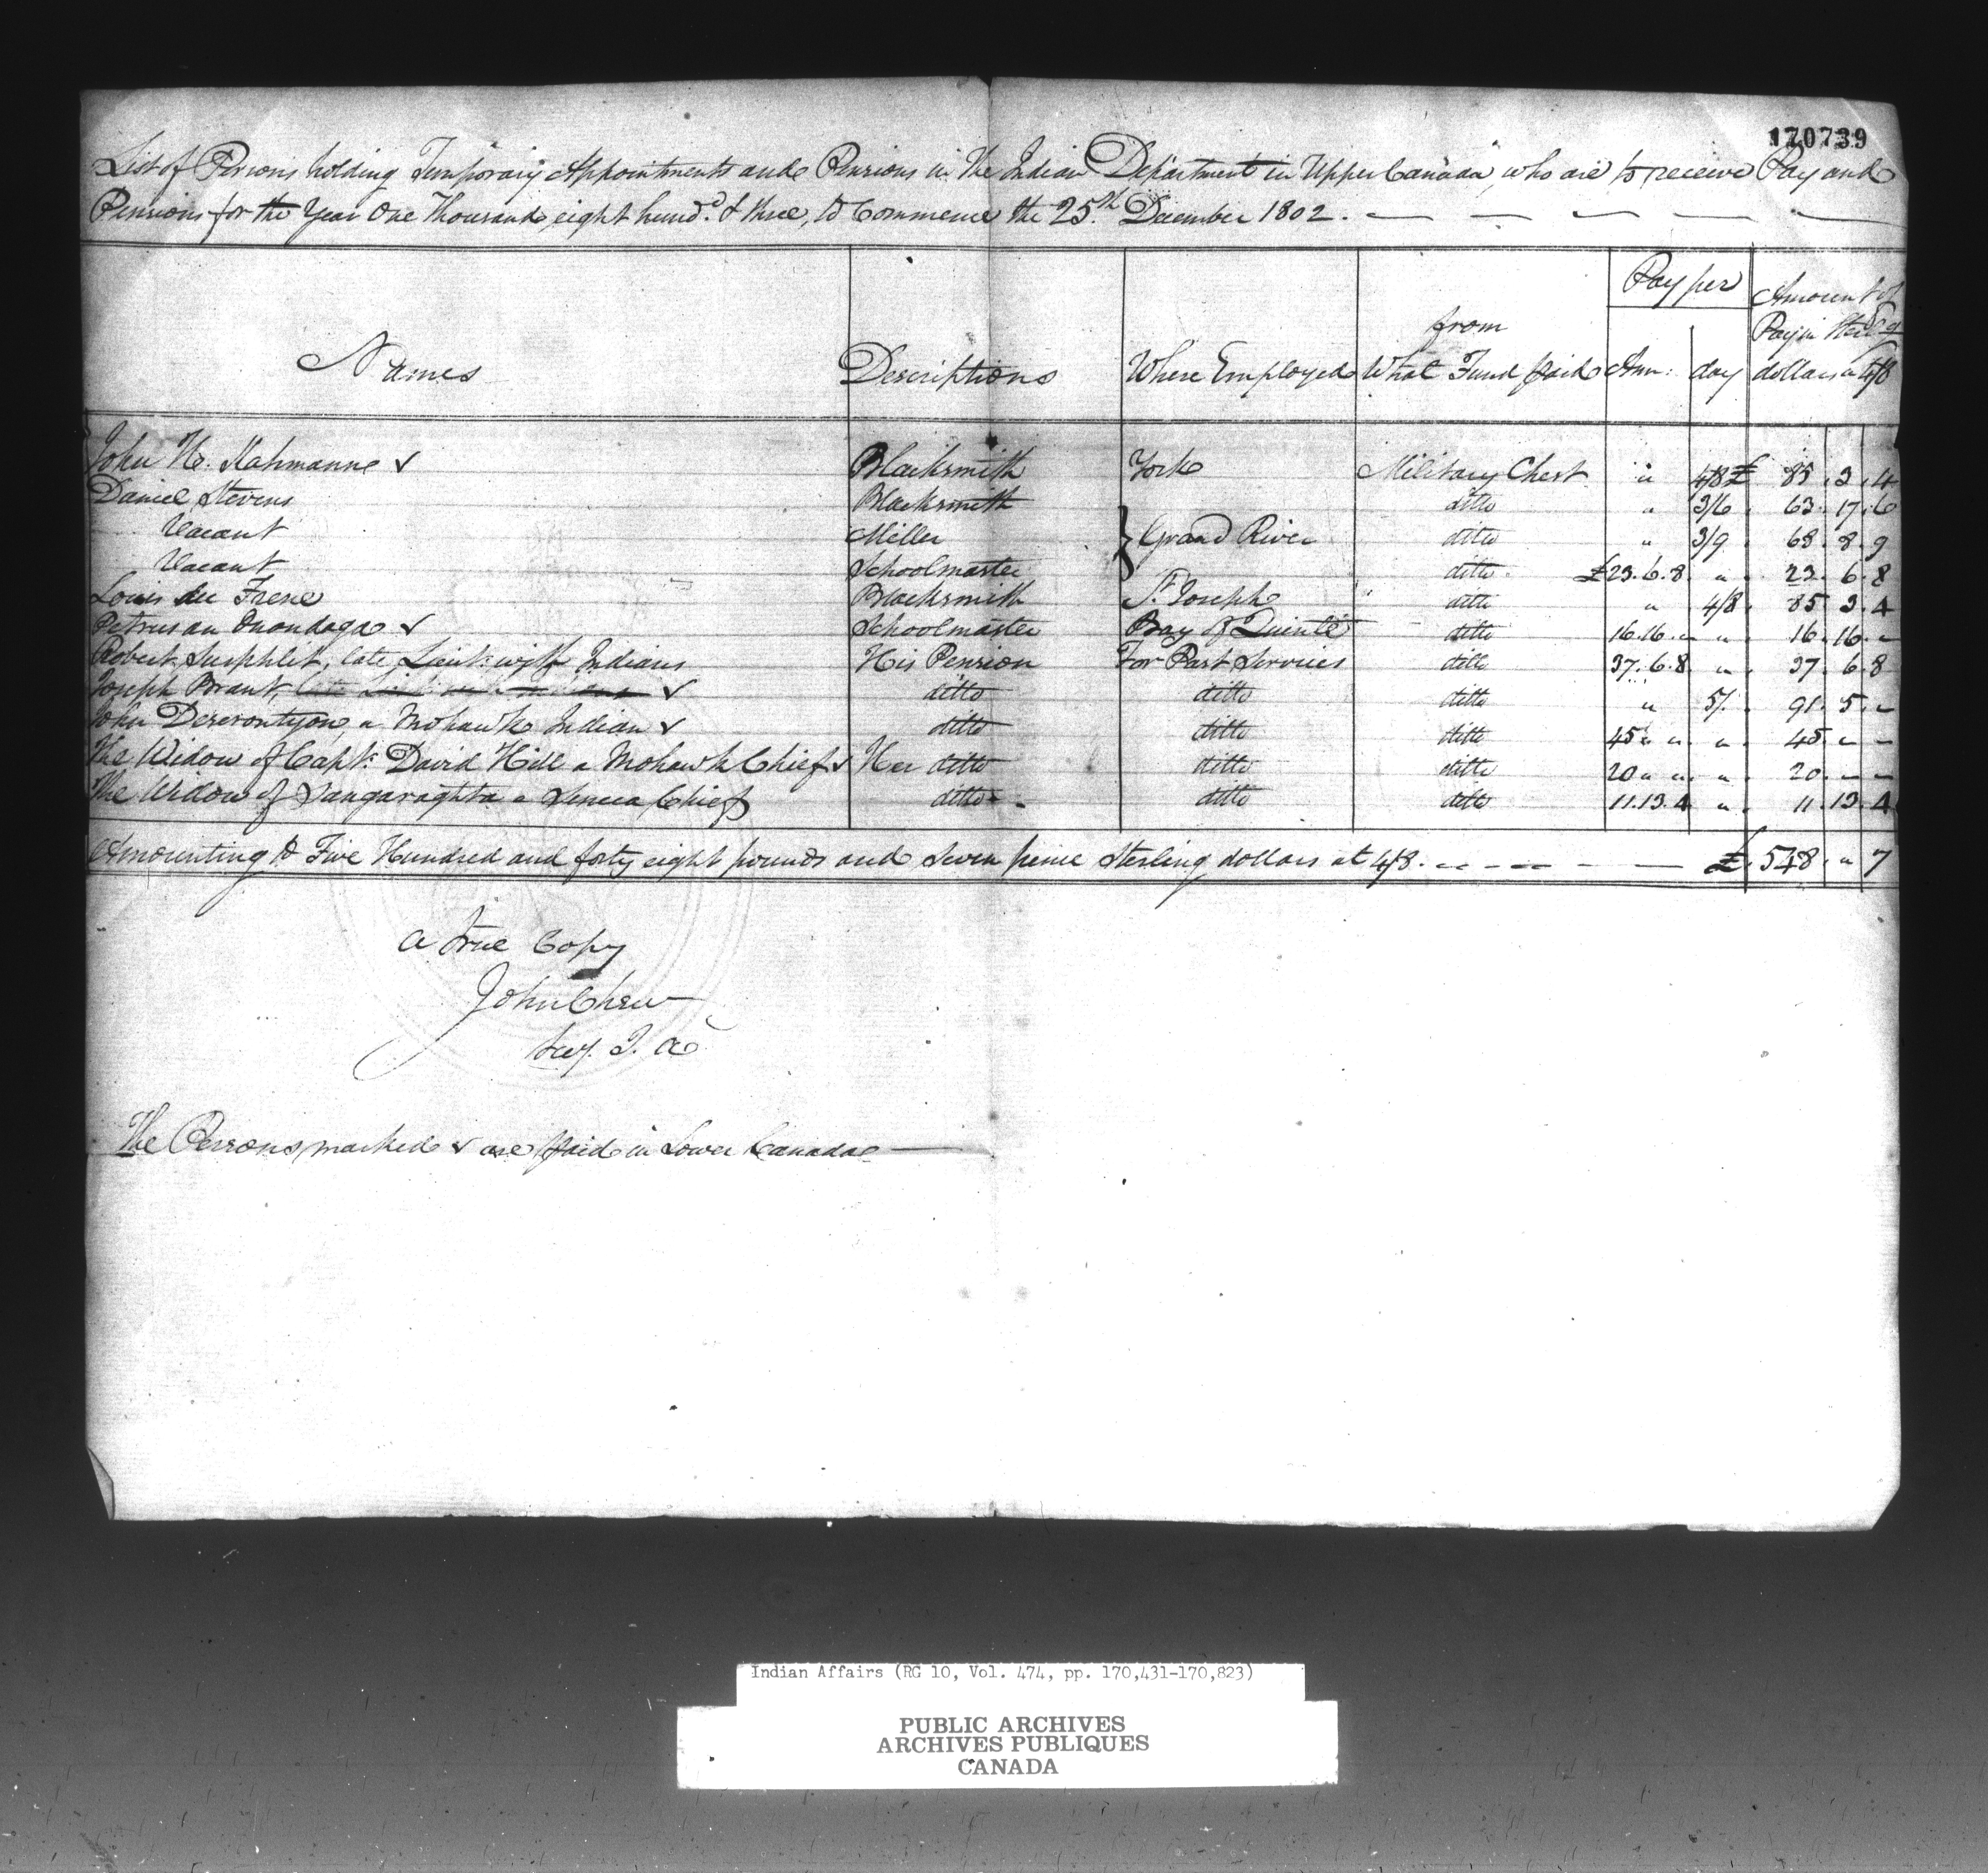 170739
List of Persons holding Temporary Appointments and Pensions in the Indian Department in Upper Canada, who are to receive Pay and
Pensions for the Year One Thousand eight hund.d & three, to Commence the 25.th December 1802.
Names Descriptions Where Employed from What Fund paid Pay per Ann: day Amount of Pay in Sterl.g dollars a 4/8
John H. Kahmann ✓ Blacksmith York Military Chest " 4/8 £ 85. 3. 4
Daniel Stevens Blacksmith ditto " 3/6 63. 17. 6
Vacant Miller } Grand River ditto " 3/9 68. 8. 9
Vacant Schoolmaster ditto £23.6.8 " 23. 6. 8
Louis du Frene Blacksmith St. Joseph ditto " 4/8 85 3. 4
Petrus an Onondaga ✓ Schoolmaster Bay of Quinté ditto 16.16. " " 16. 16. "
Robert late Lieut. with Indians His Pension For Past Services ditto 37.6.8 " 37. 6. 8
Joseph Brant, ✓ ditto ditto ditto " 5/. 91. 5. "
John Deserontyon, a Mohawk Indian ✓ ditto ditto ditto 45 " " " 45. " "
The Widow of Capt: David Hill a Mohawk Chief ✓ Her ditto ditto ditto 20 " " " 20. " "
The Widow of Sangaraghta a Seneca Chief ditto ditto ditto 11.13.4 " 11. 13. 4
Amounting to Five Hundred and forty eight pounds and Seven pence Sterling dollars at 4/8. £. 548. " 7
A true Copy
John Chew
Secy. I. A
The Persons marked ✓ are paid in Lower Canada
Indian Affairs (RG 10, Vol. 474, pp. 170,431-170,823)
PUBLIC ARCHIVES
ARCHIVES PUBLIQUES
CANADA